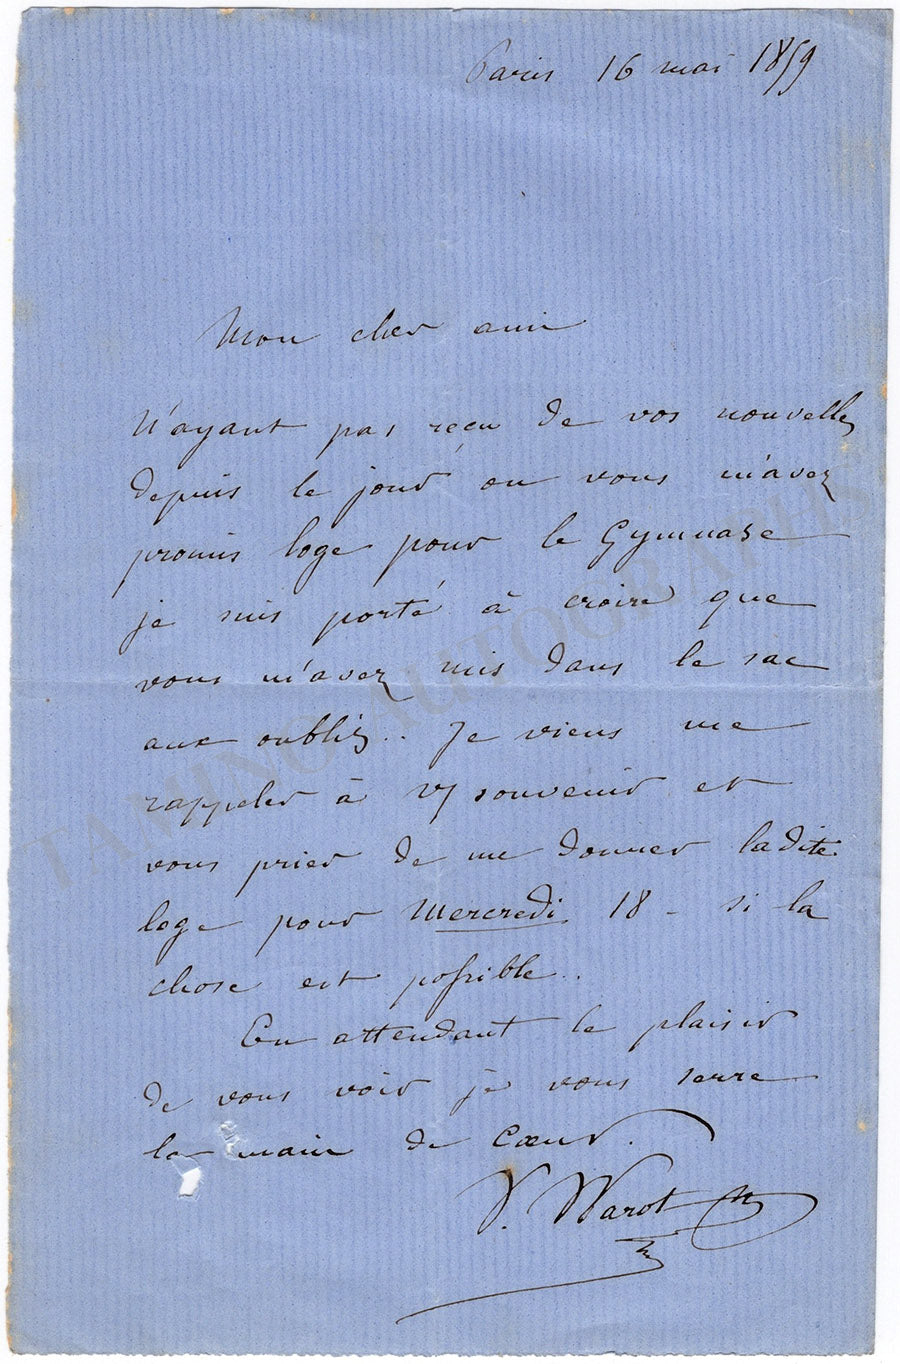 Paris 16 mai 1859
Mon cher ami
N'ayant pas reçu de vos nouvelles
depuis le jour ou vous m'avez
promis loge pour le Gymnase
je suis porté à croire que
vous m'avez mis dans le sac
aux oubliés.. Je viens me
rappeler à v/ souvenir et
vous prier de me donner ladite
loge pour Mercredi 18 - si la
chose est possible..
En attendant le plaisir
de vous voir je vous serre
la main de Cœur.
V. Warot
TAMINO AUTOGRAPHS